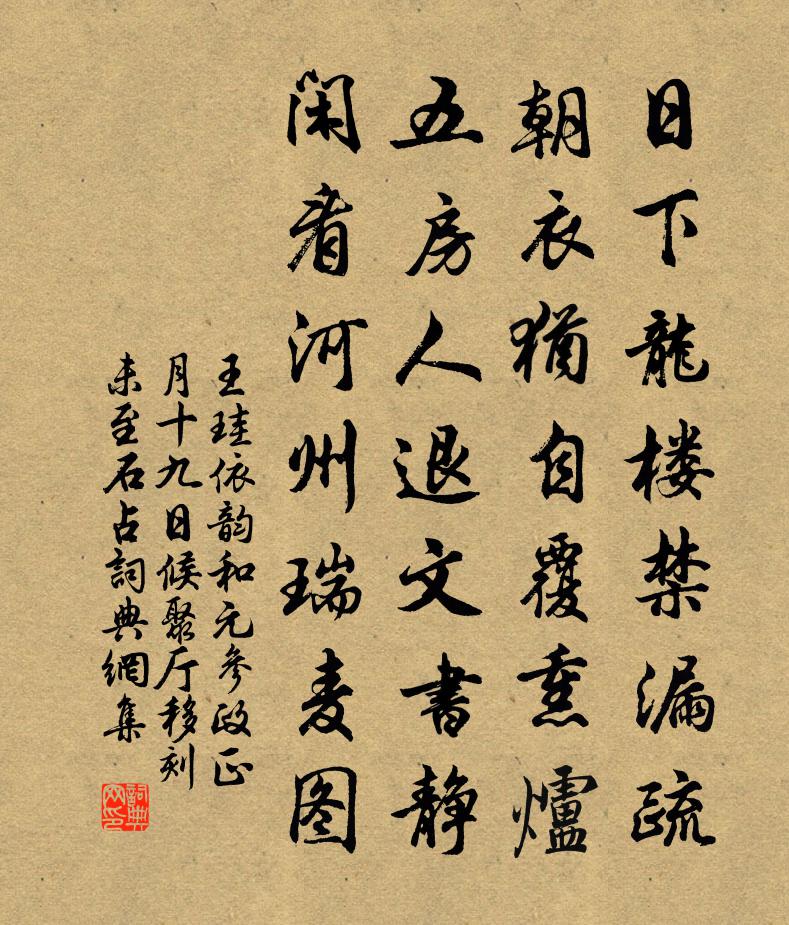 日下龍楼禁漏疏
朝衣猶自覆熏爐
五房人退文書静
闲看河州瑞麦图
王珪依韵和元參政正
月十九日候聚厅移刻
未至石占詞典網集
詞典网印